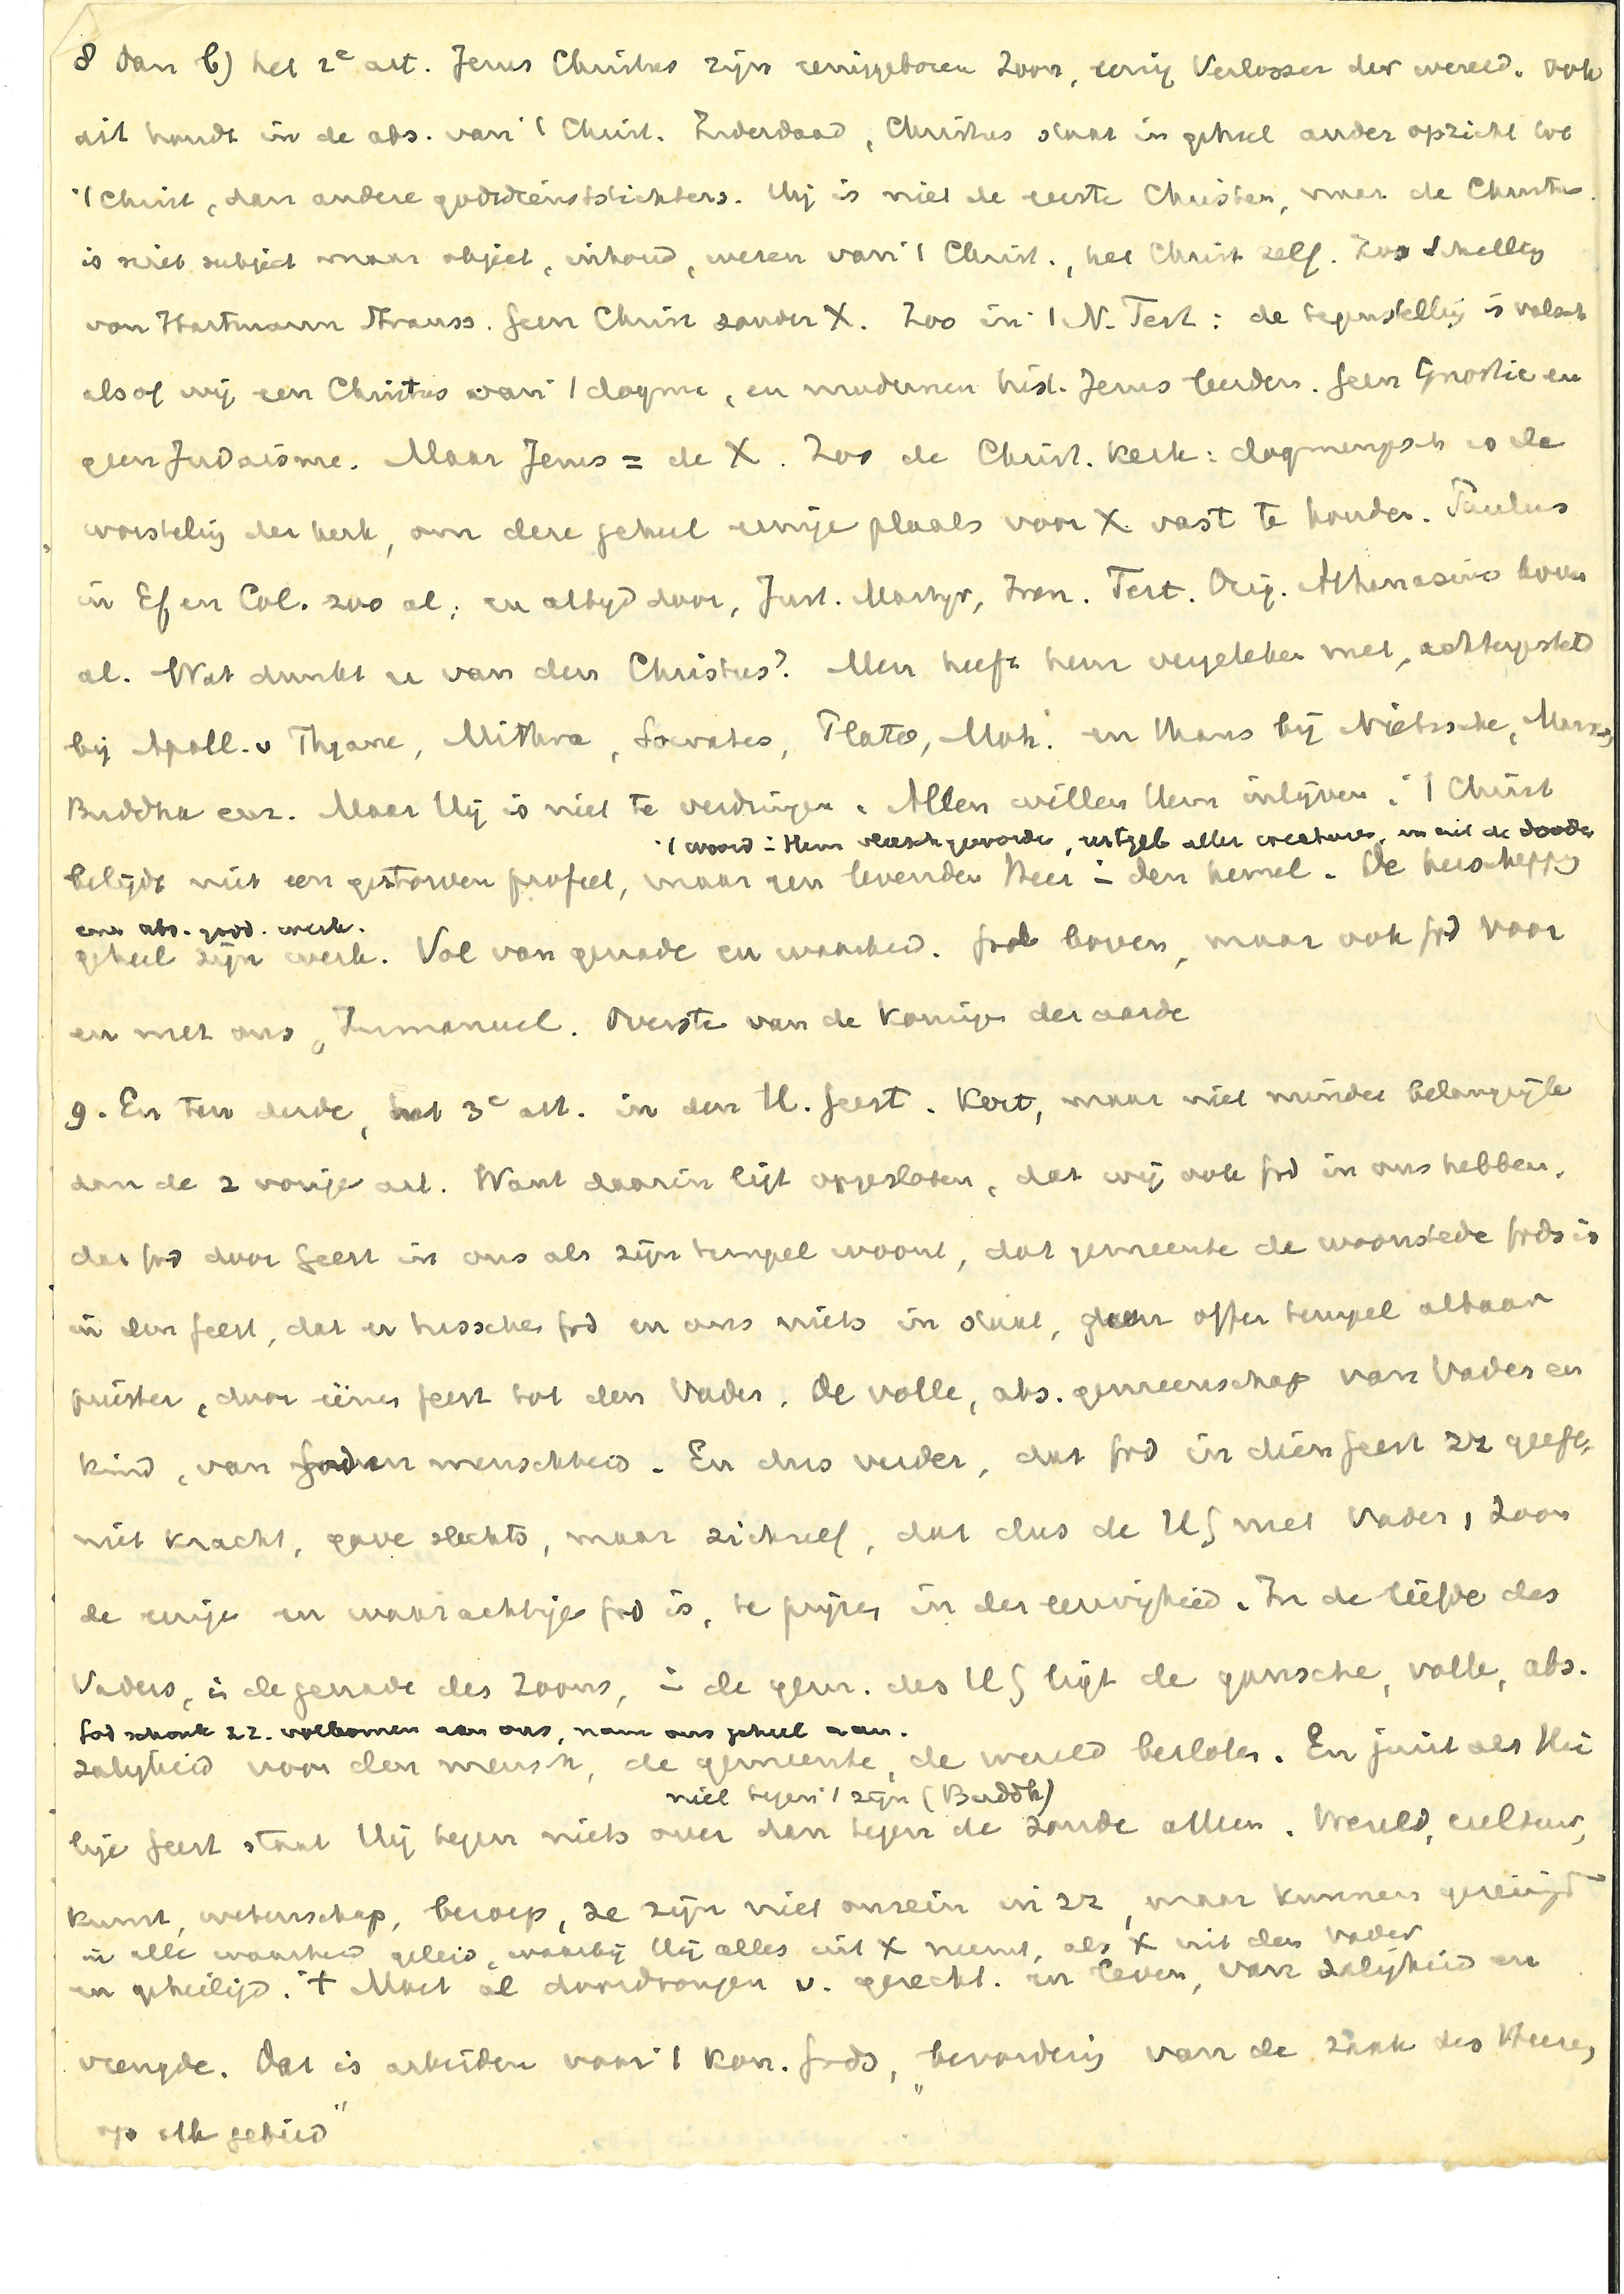 8 Dan b) het 2e art. Jezus Christus zijn eeniggeboren Zoon, eenig Verlosser der wereld. Ook
dit houdt in de abs. van 't Christ. Inderdaad, Christus staat in geheel ander opzicht tot
't Christ, dan andere godsdienststichters. Hij is niet de eerste Christen, maar de Christus.
is niet subject maar object, inhoud, wezen van 't Christ., het Christ zelf. Zoo Schelling
von Hartmann Strauss. Geen Christ zonder X. Zoo in 't N. Test: de tegenstelling is valsch
alsof wij een Christus van 't dogma, en modernen hist. Jezus leerden. Geen Gnostic en
geen Judaisme. Maar Jezus = de X. Zoo de Christ. Kerk: dogmengesch is de
worsteling der kerk, om deze geheel eenige plaats voor X vast te houden. Paulus
in Ef en Col. zoo al; en altijd door, Just. Martyr, Iren. Tert. Orig. Athanasius boven
al. Wat dunkt u van den Christus? Men heeft hem vergeleken met, achtergesteld
bij Apoll. v Thyane, Mithra, Socrates, Plato, Moh. en thans bij Nietzsche, Marx,
Buddha enz. Maar Hij is niet te verdringen. Allen willen Hem inlijven. 't Christ
't woord in Hem vleesch geworden, eerstgeb aller creaturen, en uit de dooden
belijdt niet een gestorven profeet, maar een levenden Heer in den hemel. De herschepping
een abs. godd. werk.
geheel zijn werk. Vol van genade en waarheid. God boven, maar ook God voor
en met ons, Immanuel. Overste van de Koningen der aarde
9. En ten derde, het 3e art. in den H. Geest. Kort, maar niet minder belangrijk
dan de 2 vorige art. Want daarin ligt opgesloten, dat wij ook God in ons hebben,
dat God door Geest in ons als zijn tempel woont, dat gemeente de woonstede Gods is
in den Geest, dat er tusschen God en ons niets in staat, geen offer tempel altaar
priester, door éénen geest tot den Vader. De volle, abs. gemeenschap van Vader en
kind, van God en menschheid. En dus verder, dat God in dien Geest zz geeft,
niet kracht, gave slechts, maar zichzelf, dat dus de HG met Vader, Zoon
de eenige en waarachtige God is, te prijzen in der eeuwigheid. In de liefde des
Vaders, in de genade des Zoons, in de gem. des HG ligt de gansche, volle, abs.
God schonk zz. volkomen aan ons, nam ons geheel aan.
zaligheid voor den mensch, de gemeente, de wereld besloten. En juist als Hei
niet tegen 't zijn (Buddh)
lige Geest staat Hij tegen niets over dan tegen de zonde alleen. Wereld, cultuur,
kunst, wetenschap, beroep, ze zijn niet onrein in zz, maar kunnen gereinigd
in alle waarheid geleid, waarbij Hij alles uit X neemt, als X uit den Vader
en geheiligd. 't Moet al doordrongen v. gerecht. en leven, van zaligheid en
vreugde. Dat is arbeiden voor 't Kon. Gods, "bevordering van de zaak des Heeren
op elk gebied"